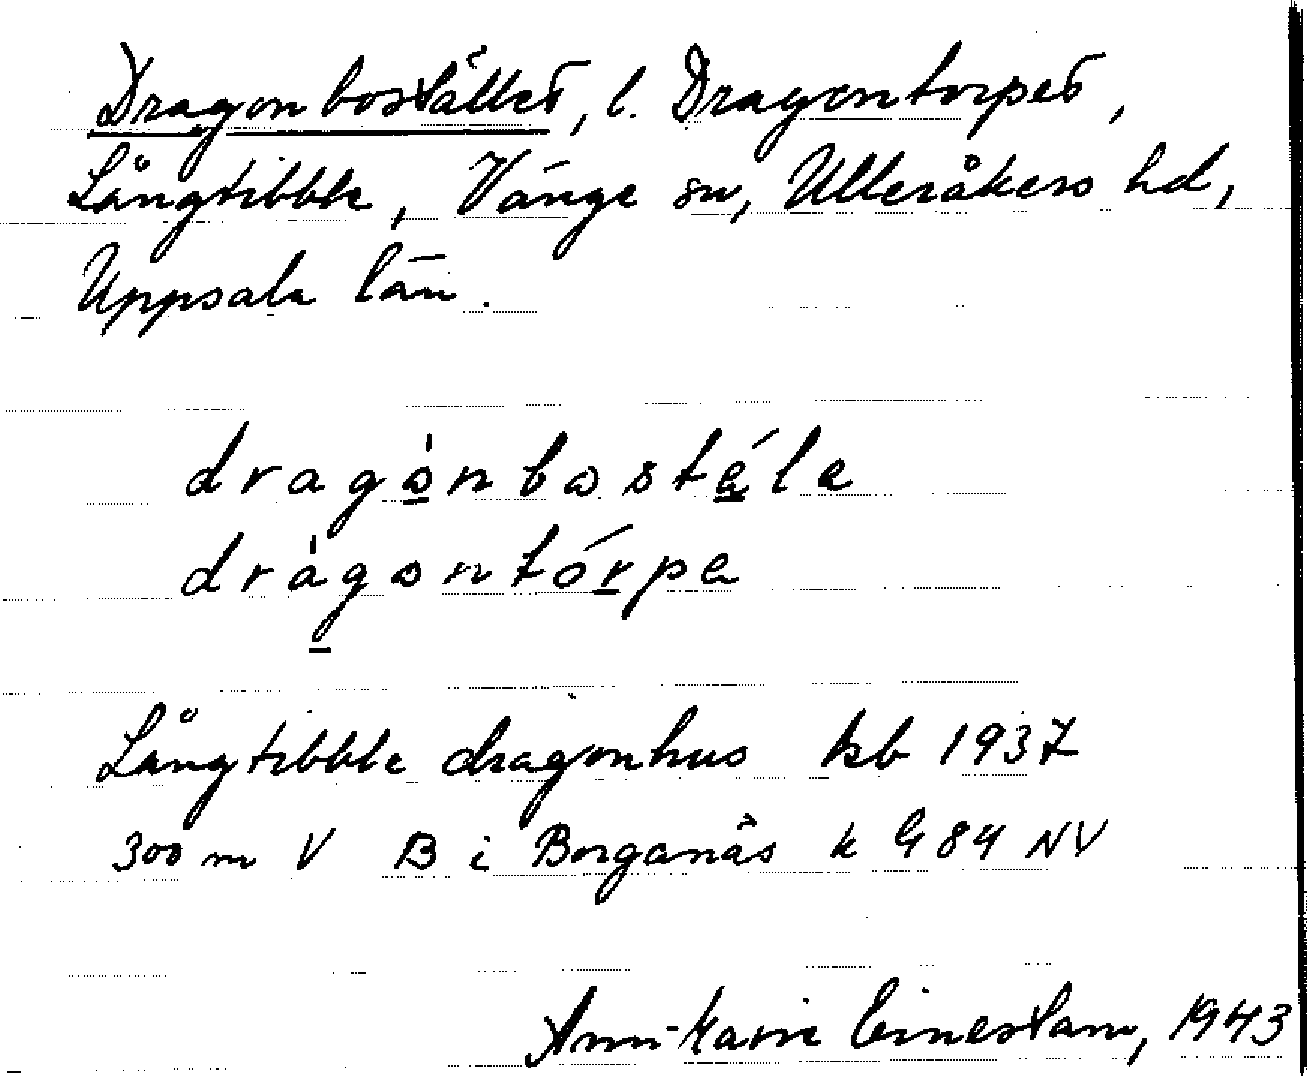 Dragonbostället, l. Dragontorpet,
Långtibble, Vänge sn, Ulleråkers hd,
Uppsala län.
dragònbostéle
dràgontórpe
Långtibble dragonhus kb 1937
300 m V B i Borganäs k G84 NV
Ann-Marie 1943